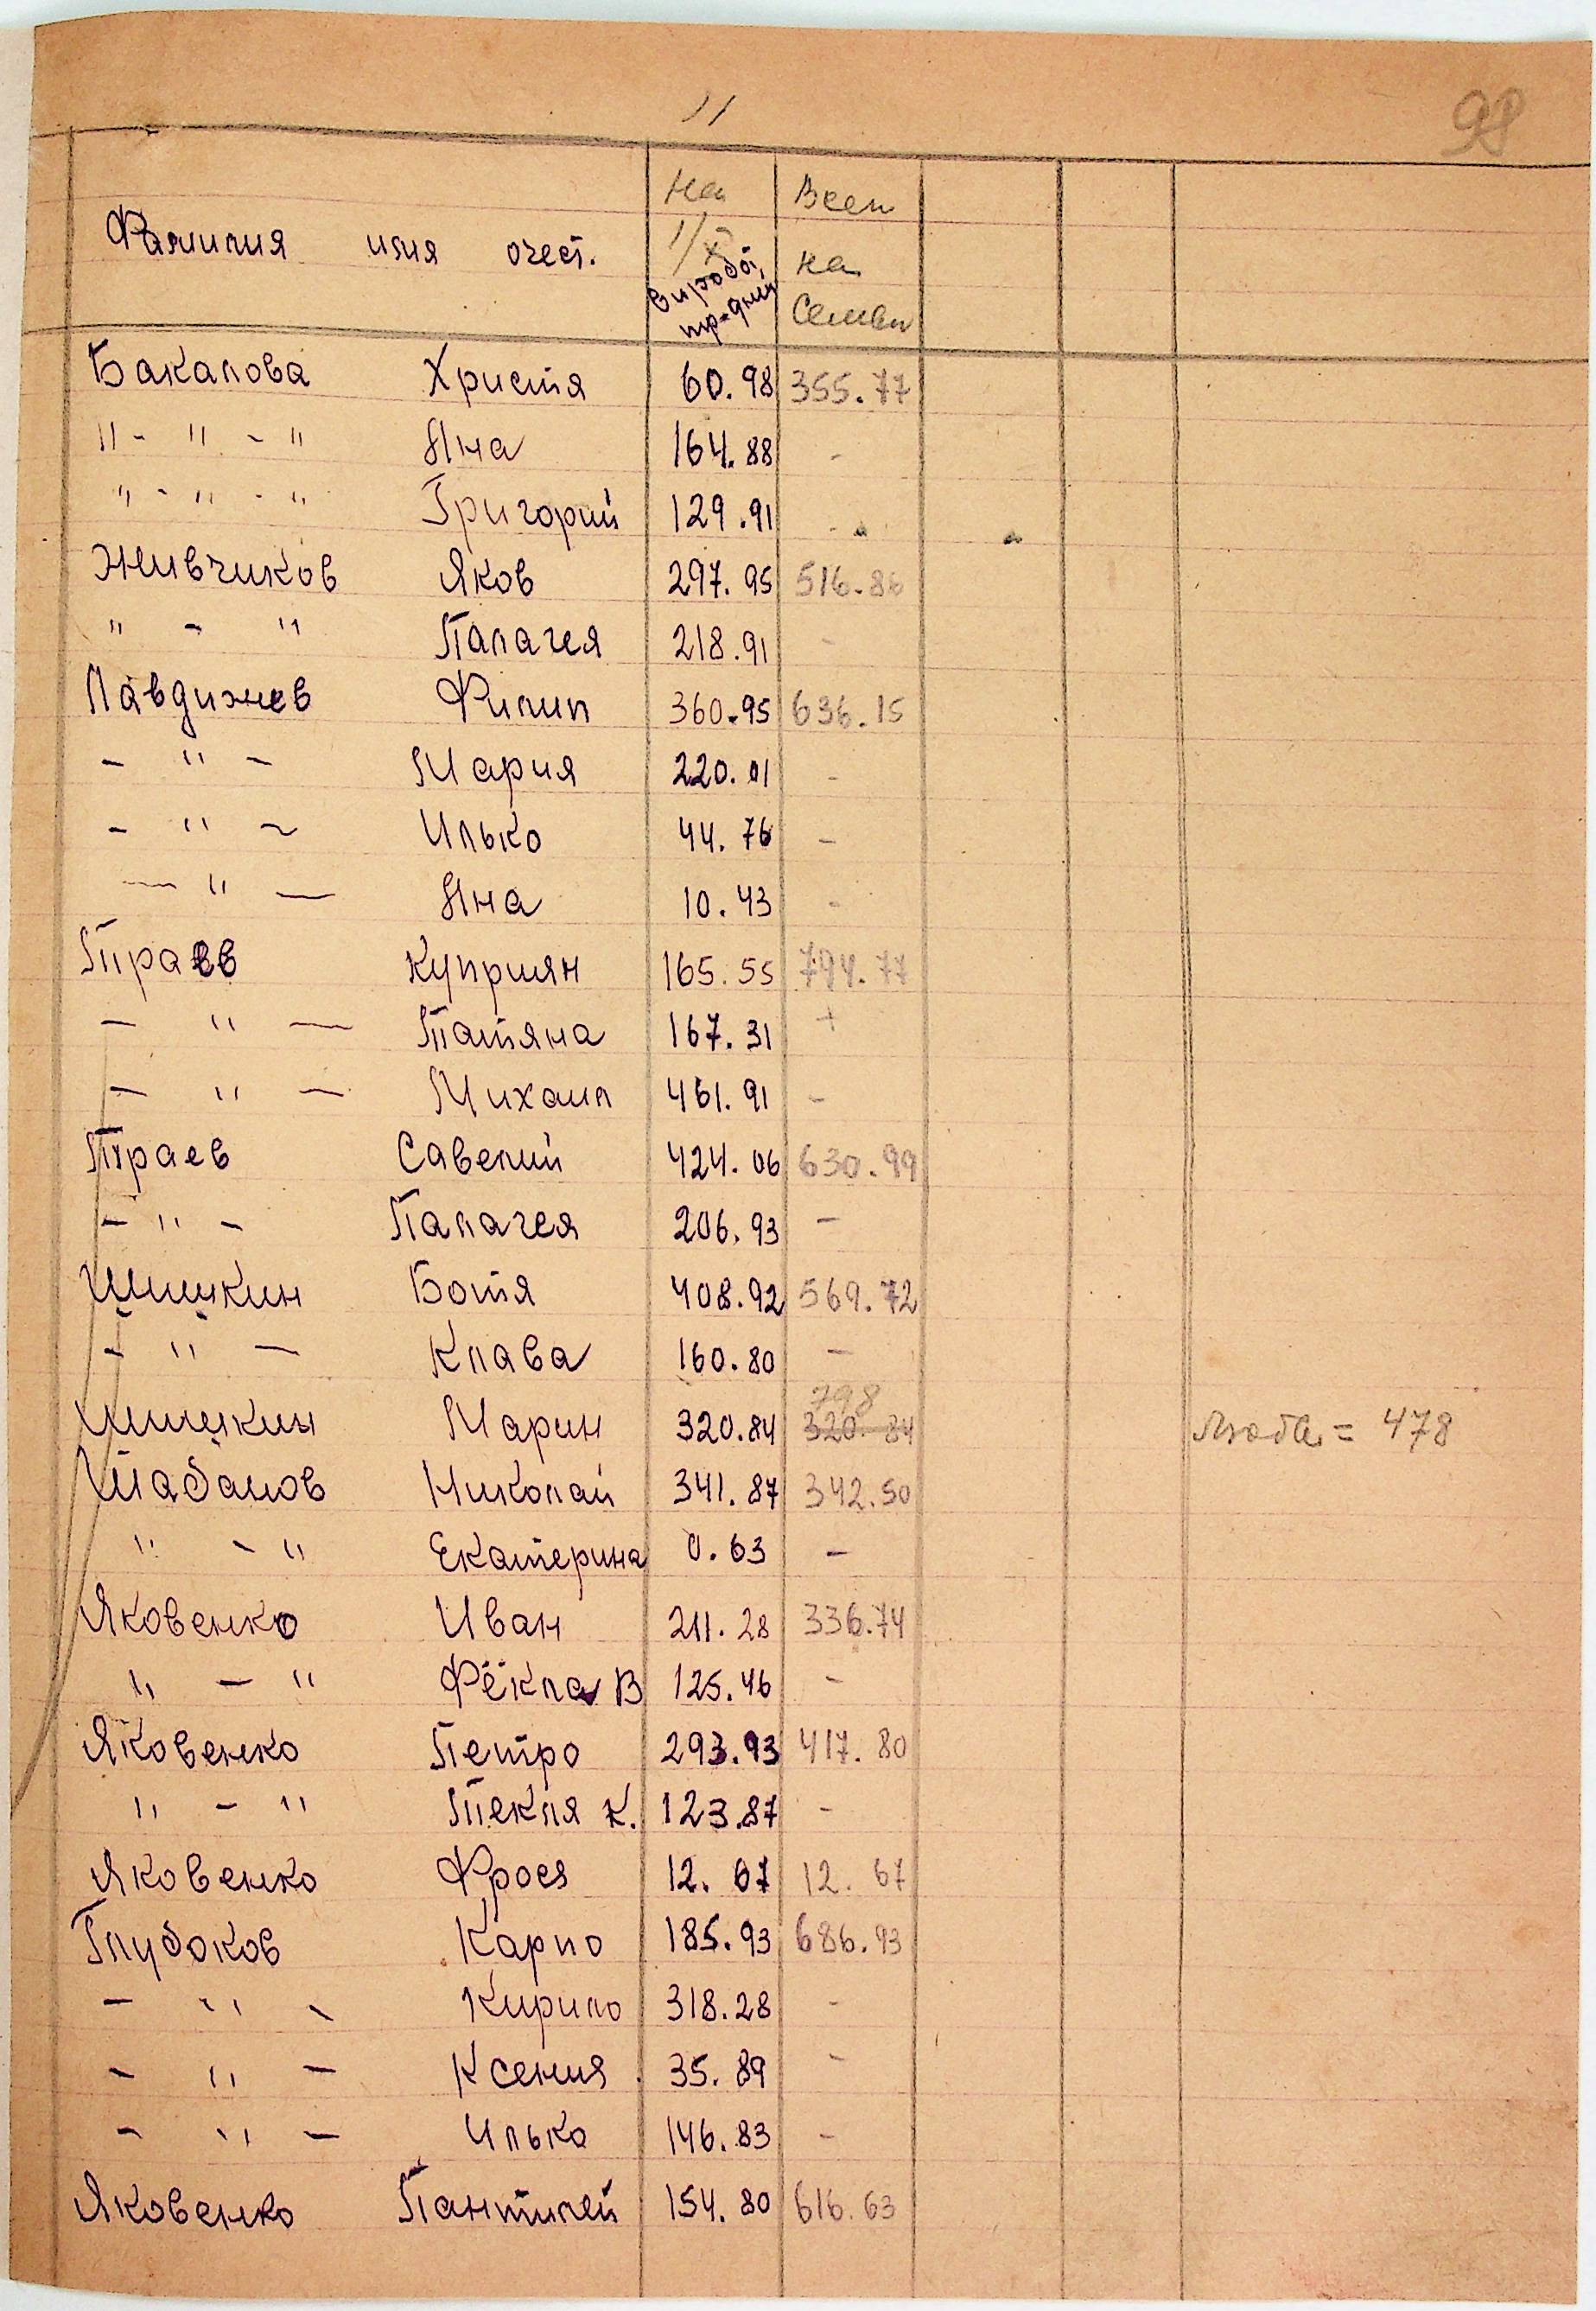 11
98
Фамилия имя отчест.
На 1/X вироби тр-дний
Всего на Семью
Бакалова Христя 60.98 355.77
" - " - " Яна 164.88 -
" - " - " Григорий 129.91 - "
Живчиков Яков 297.95 516.86
" - " Палагея 218.91 -
Павдижев Филип 360.95 636.15
- " - Мария 220.01 -
- " ~ Илько 44.76 -
— " — Яна 10.43 -
Праев Куприян 165.55 794.77
- " — Татяна 167.31 +
- " - Михаил 461.91 -
Праев Савелий 424.06 630.99
- " - Палагея 206.93 -
Шишкин Ботя 408.92 569.72
- " - Клава 160.80 -
Шишкин Марин 320.84 798 320.84
Люба = 478
Шабанов Николай 341.87 342.50
" - " Екатерина 0.63 -
Яковенко Иван 211.28 336.74
" - " Фёкла В 125.46 -
Яковенко Петро 293.93 417.80
" - " Текля К. 123.87 -
Яковенко Фрося 12.67 12.67
Глубоков Карпо 185.93 686.93
- " - Кирило 318.28 -
- " - Ксения 35.89 -
- " - Илько 146.83 -
Яковенко Пантилей 154.80 616.63